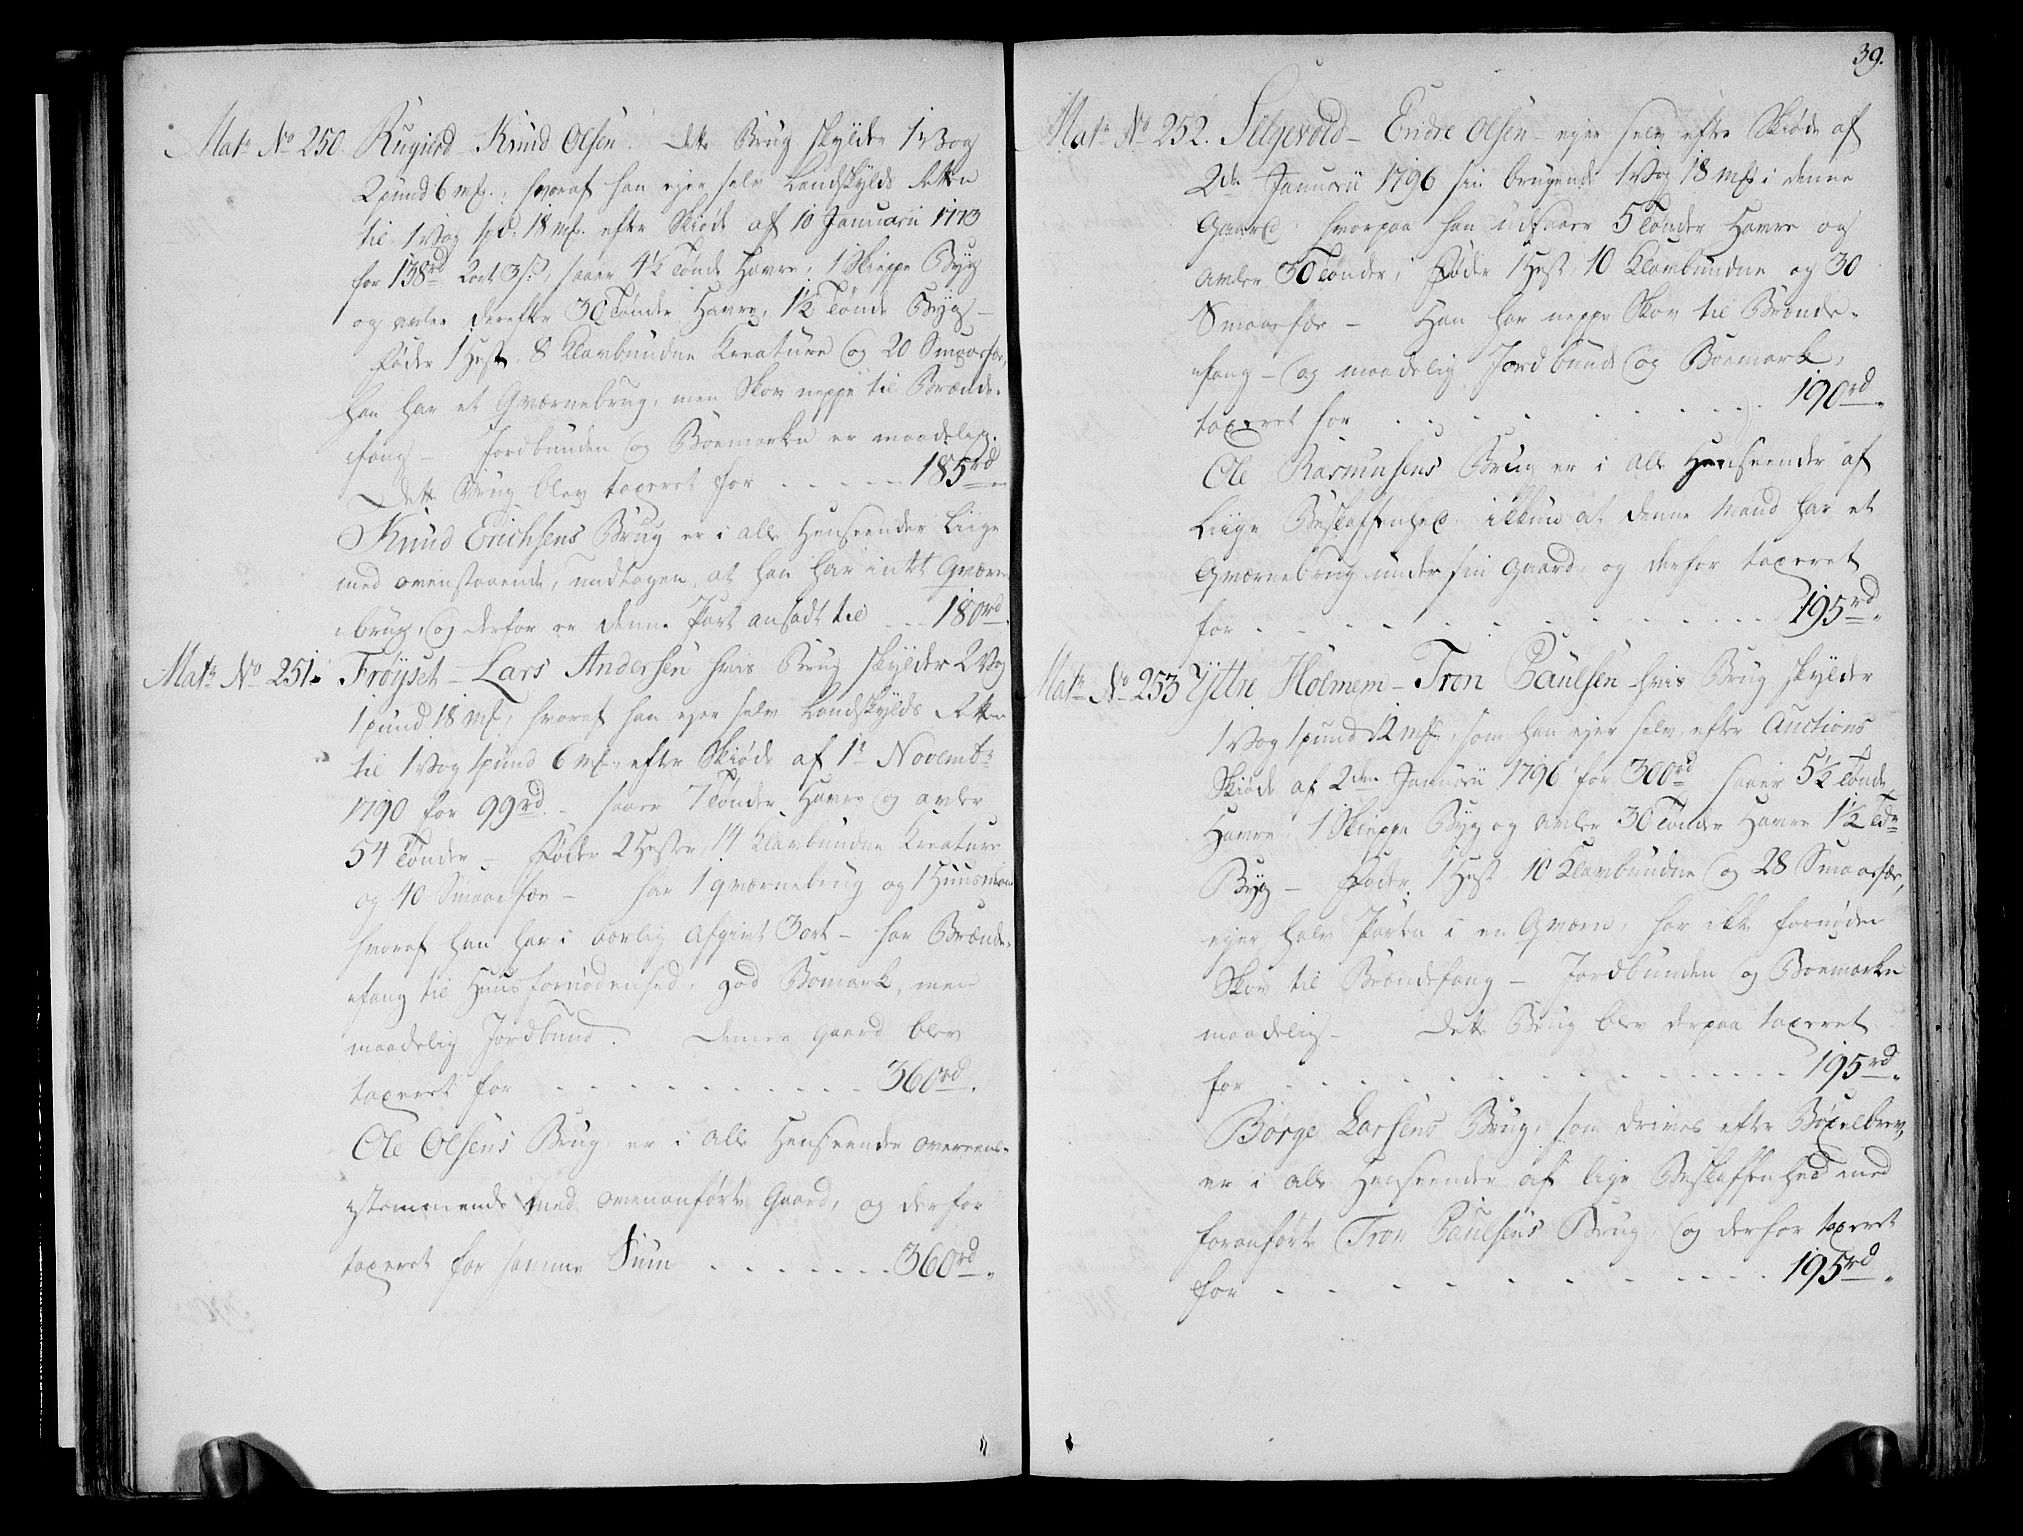 Matr No 250. Rugierd - Knud Olsen. Dette Brug skylder 1 Vog
2 pund 6 mk., hvoraf han ejer selv Landskylds Retten
til 1 Vog 1 pd: 18 mk. efter Skiøde af 10 Januarii 1773
for 138 rd 2 ort 3 s., saaer 4½ Tønde Havre, 1 Skieppe Byg
og avler derefter 30 Tønder Havre, 1½ Tønde Byg -
føder 1 Hest, 8 Klavbundne Kreature og 20 Smaafæ,
han har et Qværnebrug, men Skov neppe til Brænde-
fang - Jordbunden og Boemarken er maadelig.
Dette Brug blev taxeret for - - - - - 185 rd
Knud Erichsens Brug er i alle Henseender Liige
med ovenstaaende, undtagen at han har intet Qværn
brug, og derfor er denne Part ansadt til - - - 180 rd.
Matr No 251. Frøyset - Lars Andersen hvis Brug skylder 2 Vog
1 pund 18 mk, hvoraf han ejer selv Landskylds Retten
til 1 Vog 1 pund 6 mk. efter Skiøde af 1te Novembr
1790 for 99 rd. - saaer 7 Tønder Havre og avler
54 Tønder - føder 2 Heste, 14 Klavbundne Kreature
og 40 Smaafæe - har 1 qværnebrug og 1 Huusmand
hvoraf han har i aarlig Afgivt 3 ort - har Brænde-
fang til Huus fornødenhed, god Bomark, men
maadelig Jordbund. Denne gaard blev
taxeret for - - - - - - - - - - 360 rd.
Ole Olsens Brug er i alle Henseender overeens-
stemmende med ovenanførte Gaard, og derfor
taxeret for samme Sum - - - - - - - 360 rd.
39.
Matr No 252. Selgevold - Endre Olsen - ejer selv efter Skiøde af
2den Januarii 1796 sin brugende 1 Vog 18 mk i denne
Gaard, hvorpaa han udsaaer 5 Tønder Havre og
avler 30 Tønder, føder 1 Hest, 10 Klavbundne og 30
Smaafæ - Han har neppe Skov til Brænde-
fang - og maadelig Jordbund og Boemark,
taxeret for - - - - - - - - - - 190 rd.
Ole Rasmusens Brug er i alle Henseender af
Liige Beskaffenhed, ikkun at denne Mand har et
Qværnebrug under sin Gaard, og derfor taxeret
for - - - - - - - - - - - - 195 rd.
Matr No 253 Yttre Holmem - Tron Paulsen - hvis Brug skylder
1 Vog 1 pund 12 mk., som han ejer selv, efter Auctions
Skiøde af 2den Januarii 1796 for 300 rd saaer 5½ Tønde
Havre, 1 Skieppe Byg og avler 30 Tønder Havre 1½ Tde
Byg - Føder 1 Hest 10 Klavbundne og 28 Smaafæ,
ejer halv Parten i en Qværn, har ikke fornøden
Skov til Brændefang - Jordbunden og Boemarken
maadelig - Dette Brug blev derpaa taxeret
for - - - - - - - - - - - - 195 rd.
Børge Larsens Brug, som drives efter Bøxelbrev,
er i alle Henseender af lige Beskaffenhed med
foranførte Tron Paulsens Brug, og derfor taxeret
for - - - - - - - - - - - - 195 rd.